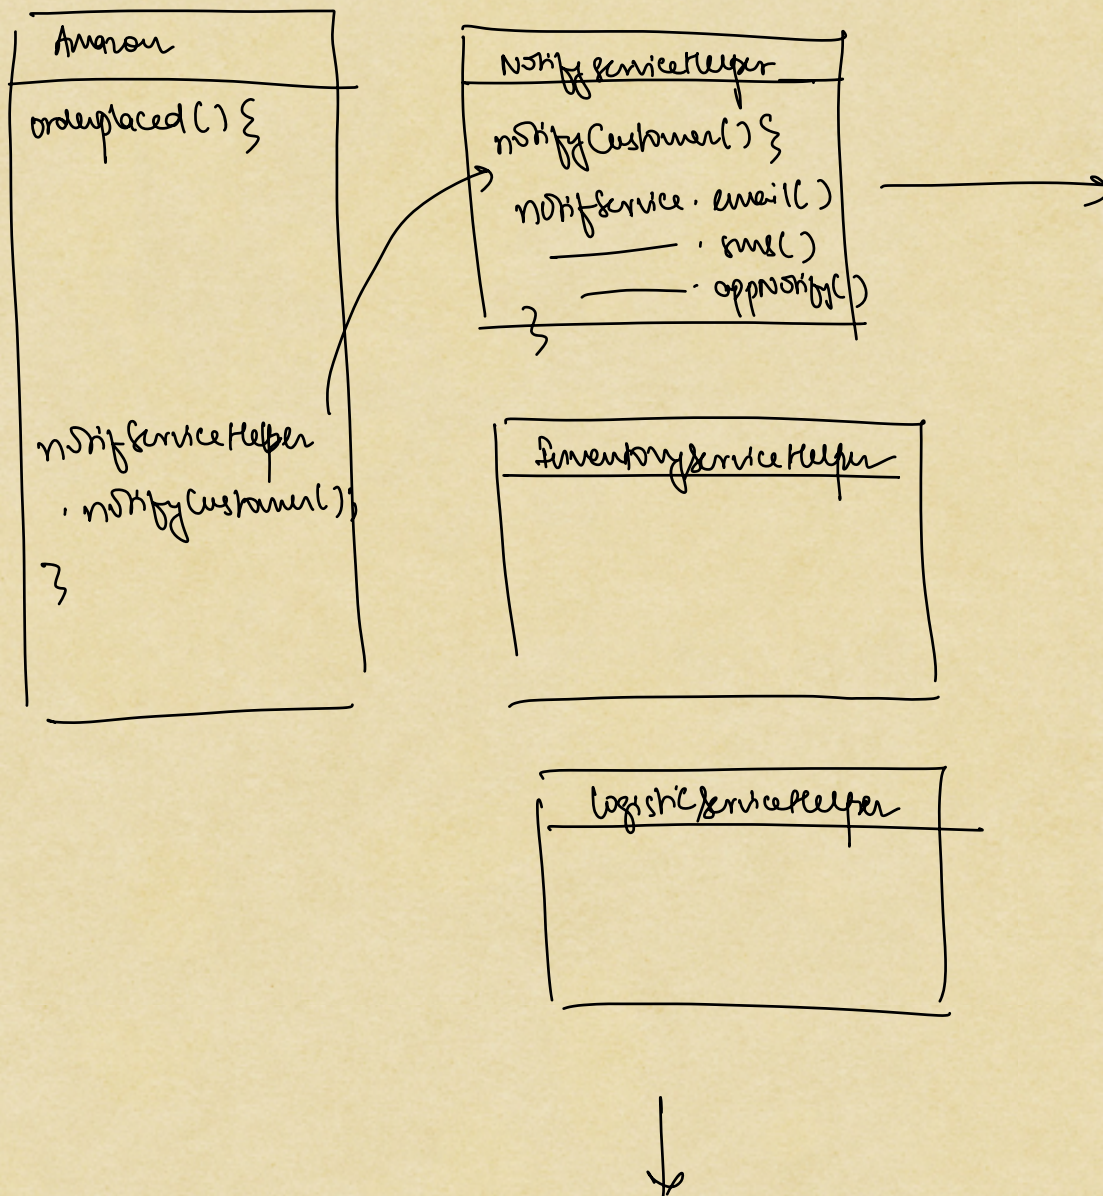 Amazon
orderplaced() {
notifServiceHelper
. notifyCustomer();
}
NotifyServiceHelper
notifyCustomer() {
notifService. email()
. sms()
. appNotify()
}
InventoryServiceHelper
LogisticServiceHelper